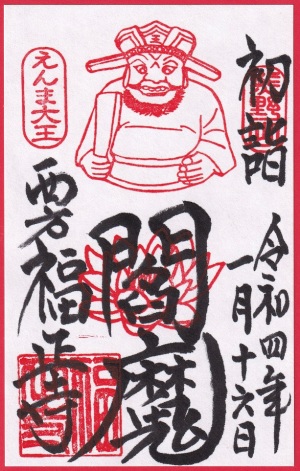 初詣
令和四年
一月十六日
閻魔
えんま大王
西方福正寺